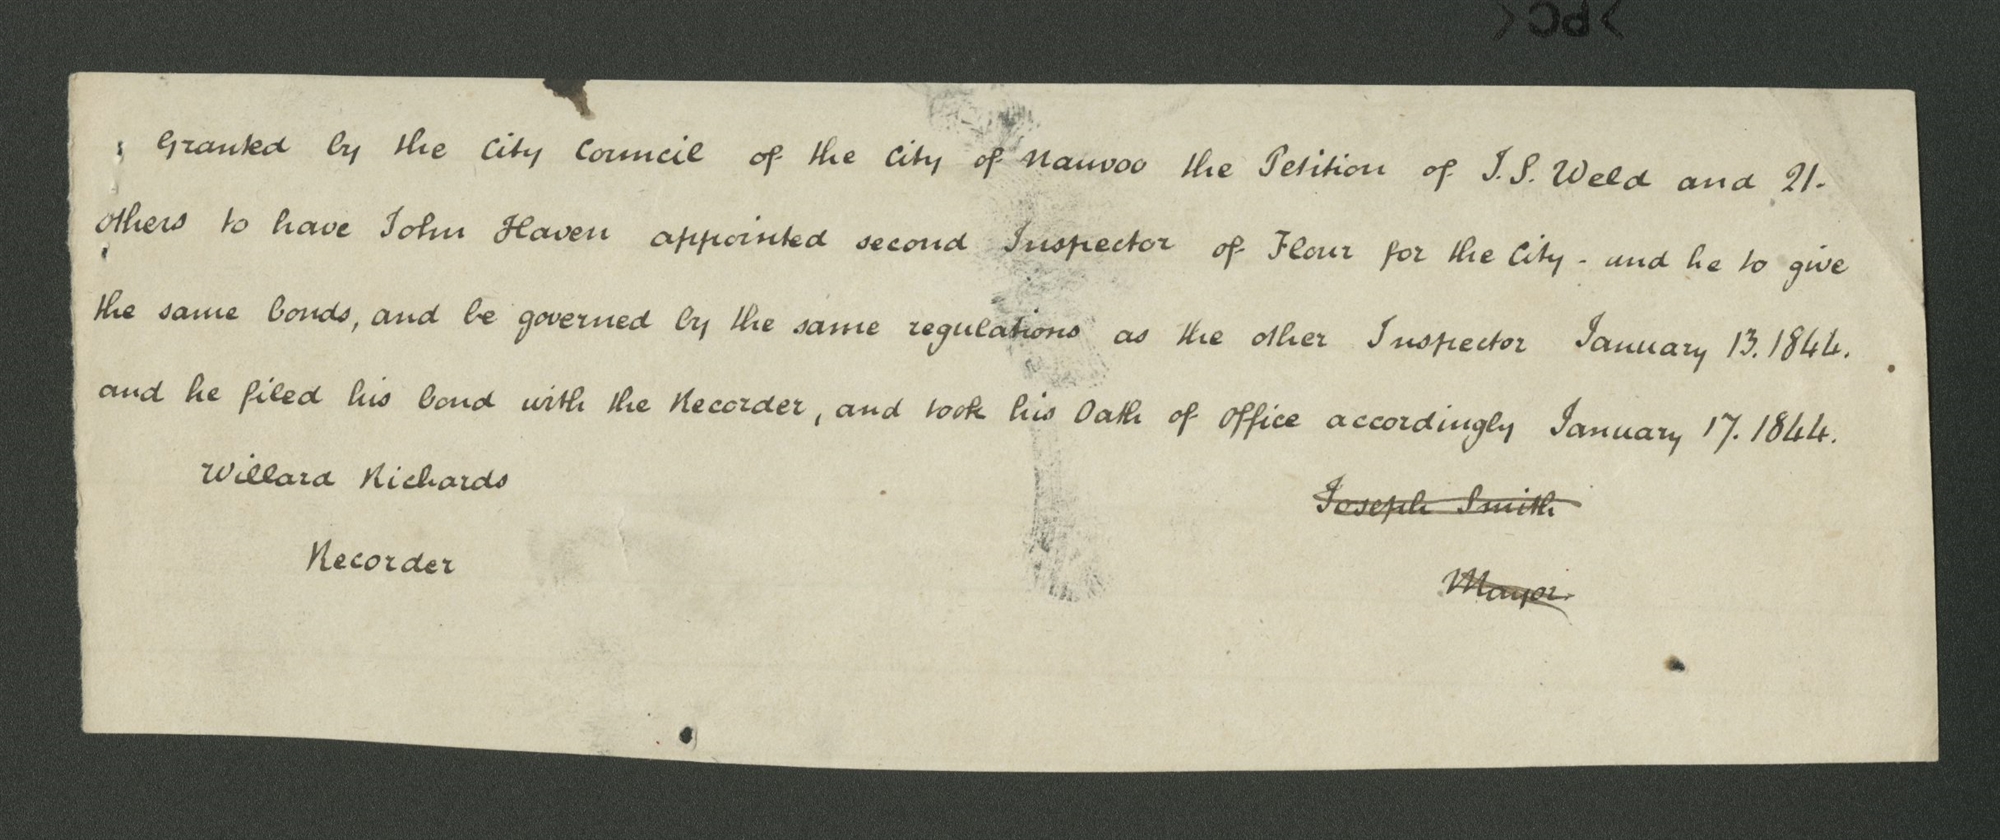 Granted by the City Council of the City of Nauvoo the Petition of J. S. Weld and 21-
others to have John Haven appointed second Inspector of Flour for the City - and he to give
the same bonds, and be governed by the same regulations as the other Inspector January 13. 1844.
and he filed his bond with the Recorder, and took his Oath of office accordingly January 17. 1844.
Willard Richards
Joseph Smith
Recorder
Mayor.